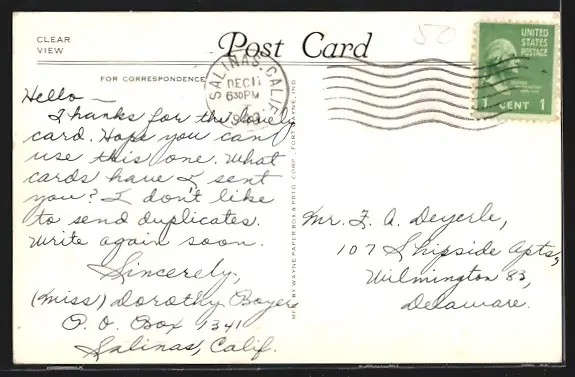 CLEAR
VIEW
Post Card
50
FOR CORRESPONDENCE
SALINAS, CALIF.
DEC 11
6 30 PM
UNITED
STATES
POSTAGE
1 CENT 1
Hello —
Thanks for the lovely
card. Hope you can
use this one. What
cards have I sent
you? I don't like
to send duplicates.
Write again soon.
Sincerely,
(Miss) Dorothy Boyers
P. O. Box 1341
Salinas, Calif.
MFD BY WAYNE PAPER BOX & PRTG. CORP., FORT WAYNE, IND.
Mr. F. A. Deyerle,
107 Shipside Apts,
Wilmington 83,
Delaware.